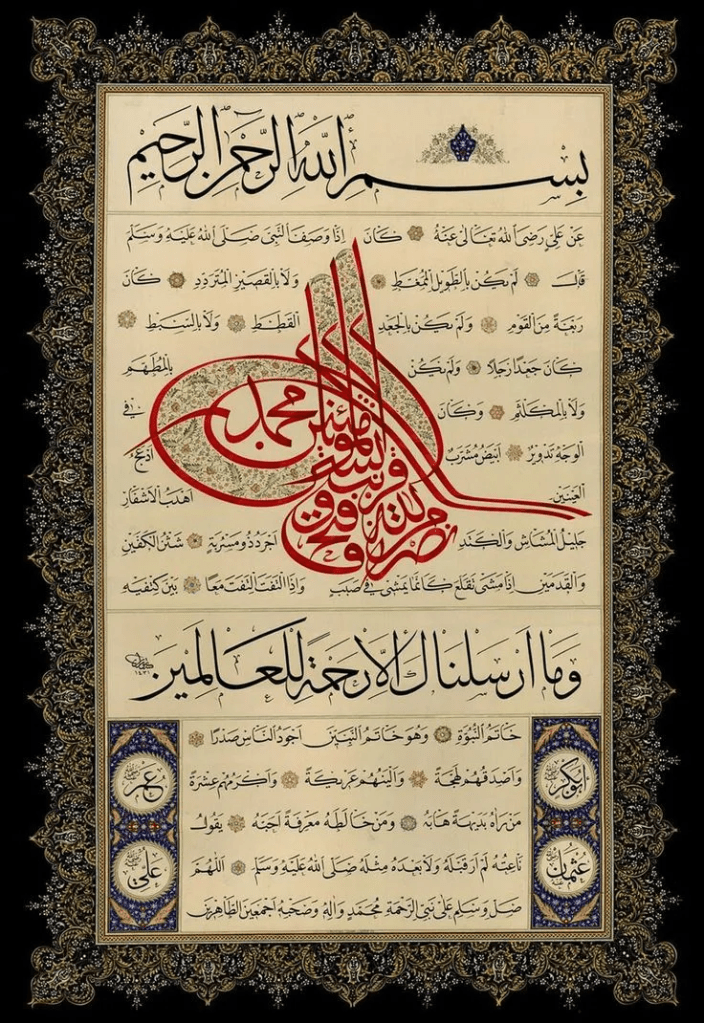 بِسْمِ اللّٰهِ الرَّحْمٰنِ الرَّحِيْمِ
عَنْ عَلِيٍّ رَضِيَ اللّٰهُ تَعَالٰى عَنْهُ كَانَ اِذَا وَصَفَ النَّبِيَّ صَلَّى اللّٰهُ عَلَيْهِ وَسَلَّمَ
قَالَ لَمْ يَكُنْ بِالطَّوِيلِ الْمُمَغَّطِ وَلَا بِالْقَصِيرِ الْمُتَرَدِّدِ كَانَ
رَبْعَةً مِنَ الْقَوْمِ وَلَمْ يَكُنْ بِالْجَعْدِ الْقَطَطِ وَلَا بِالسَّبِطِ
كَانَ جَعْدًا رَجِلًا وَلَمْ يَكُنْ بِالْمُطَهَّمِ
وَلَا بِالْمُكَلْثَمِ وَكَانَ فِي
الْوَجْهِ تَدْوِيرٌ اَبْيَضُ مُشْرَبٌ اَدْعَجُ
الْعَيْنَيْنِ اَهْدَبُ الْاَشْفَارِ
جَلِيلُ الْمُشَاشِ وَالْكَتَدِ اَجْرَدُ ذُو مَسْرُبَةٍ شَثْنُ الْكَفَّيْنِ
وَالْقَدَمَيْنِ اِذَا مَشٰى تَقَلَّعَ كَاَنَّمَا يَمْشِي فِي صَبَبٍ وَاِذَا الْتَفَتَ الْتَفَتَ مَعًا بَيْنَ كَتِفَيْهِ
نصر من الله وفتح قريب وبشر المؤمنين
محمد
وَمَا اَرْسَلْنَاكَ اِلَّا رَحْمَةً لِلْعَالَمِينَ
١٤٣١
خَاتَمُ النُّبُوَّةِ وَهُوَ خَاتَمُ النَّبِيِّينَ اَجْوَدُ النَّاسِ صَدْرًا
وَاَصْدَقُهُمْ لَهْجَةً وَاَلْيَنُهُمْ عَرِيكَةً وَاَكْرَمُهُمْ عِشْرَةً
مَنْ رَاٰهُ بَدِيهَةً هَابَهُ وَمَنْ خَالَطَهُ مَعْرِفَةً اَحَبَّهُ يَقُولُ
نَاعِتُهُ لَمْ اَرَ قَبْلَهُ وَلَا بَعْدَهُ مِثْلَهُ صَلَّى اللّٰهُ عَلَيْهِ وَسَلَّمَ اَللّٰهُمَّ
صَلِّ وَسَلِّمْ عَلٰى نَبِيِّ الرَّحْمَةِ مُحَمَّدٍ وَاٰلِهِ وَصَحْبِهِ اَجْمَعِينَ الطَّاهِرِينَ
ابوبكر
عمر
عثمان
علي